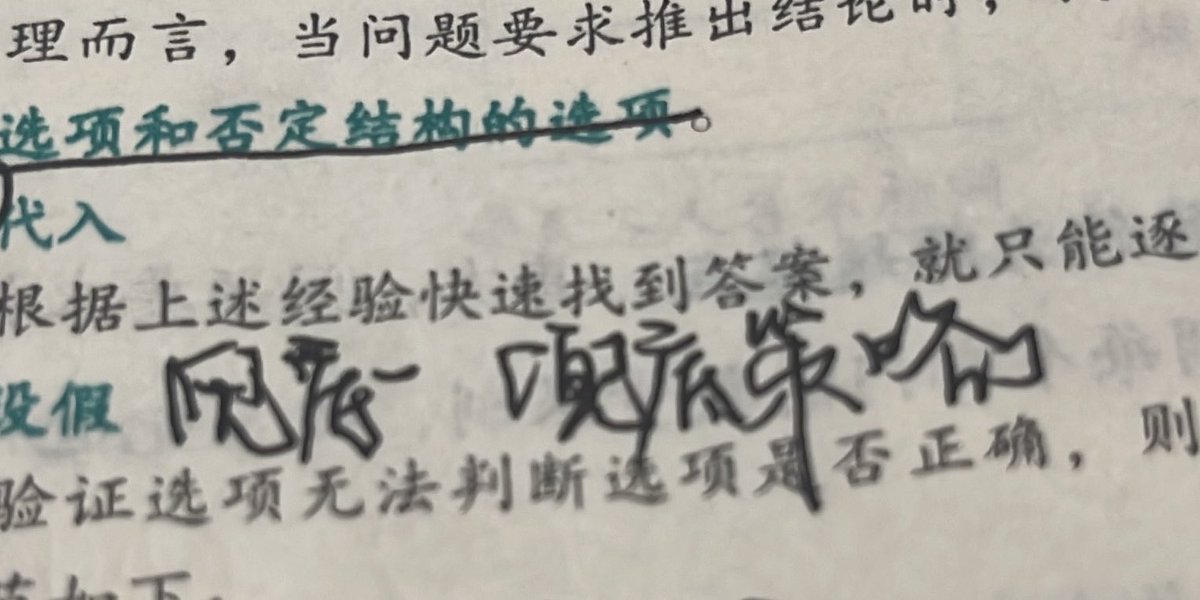 理而言，当问题要求推出结论时，
选项和否定结构的选项。
代入
根据上述经验快速找到答案，就只能逐
设假 兜底 兜底策略
验证选项无法判断选项是否正确，则
如下：